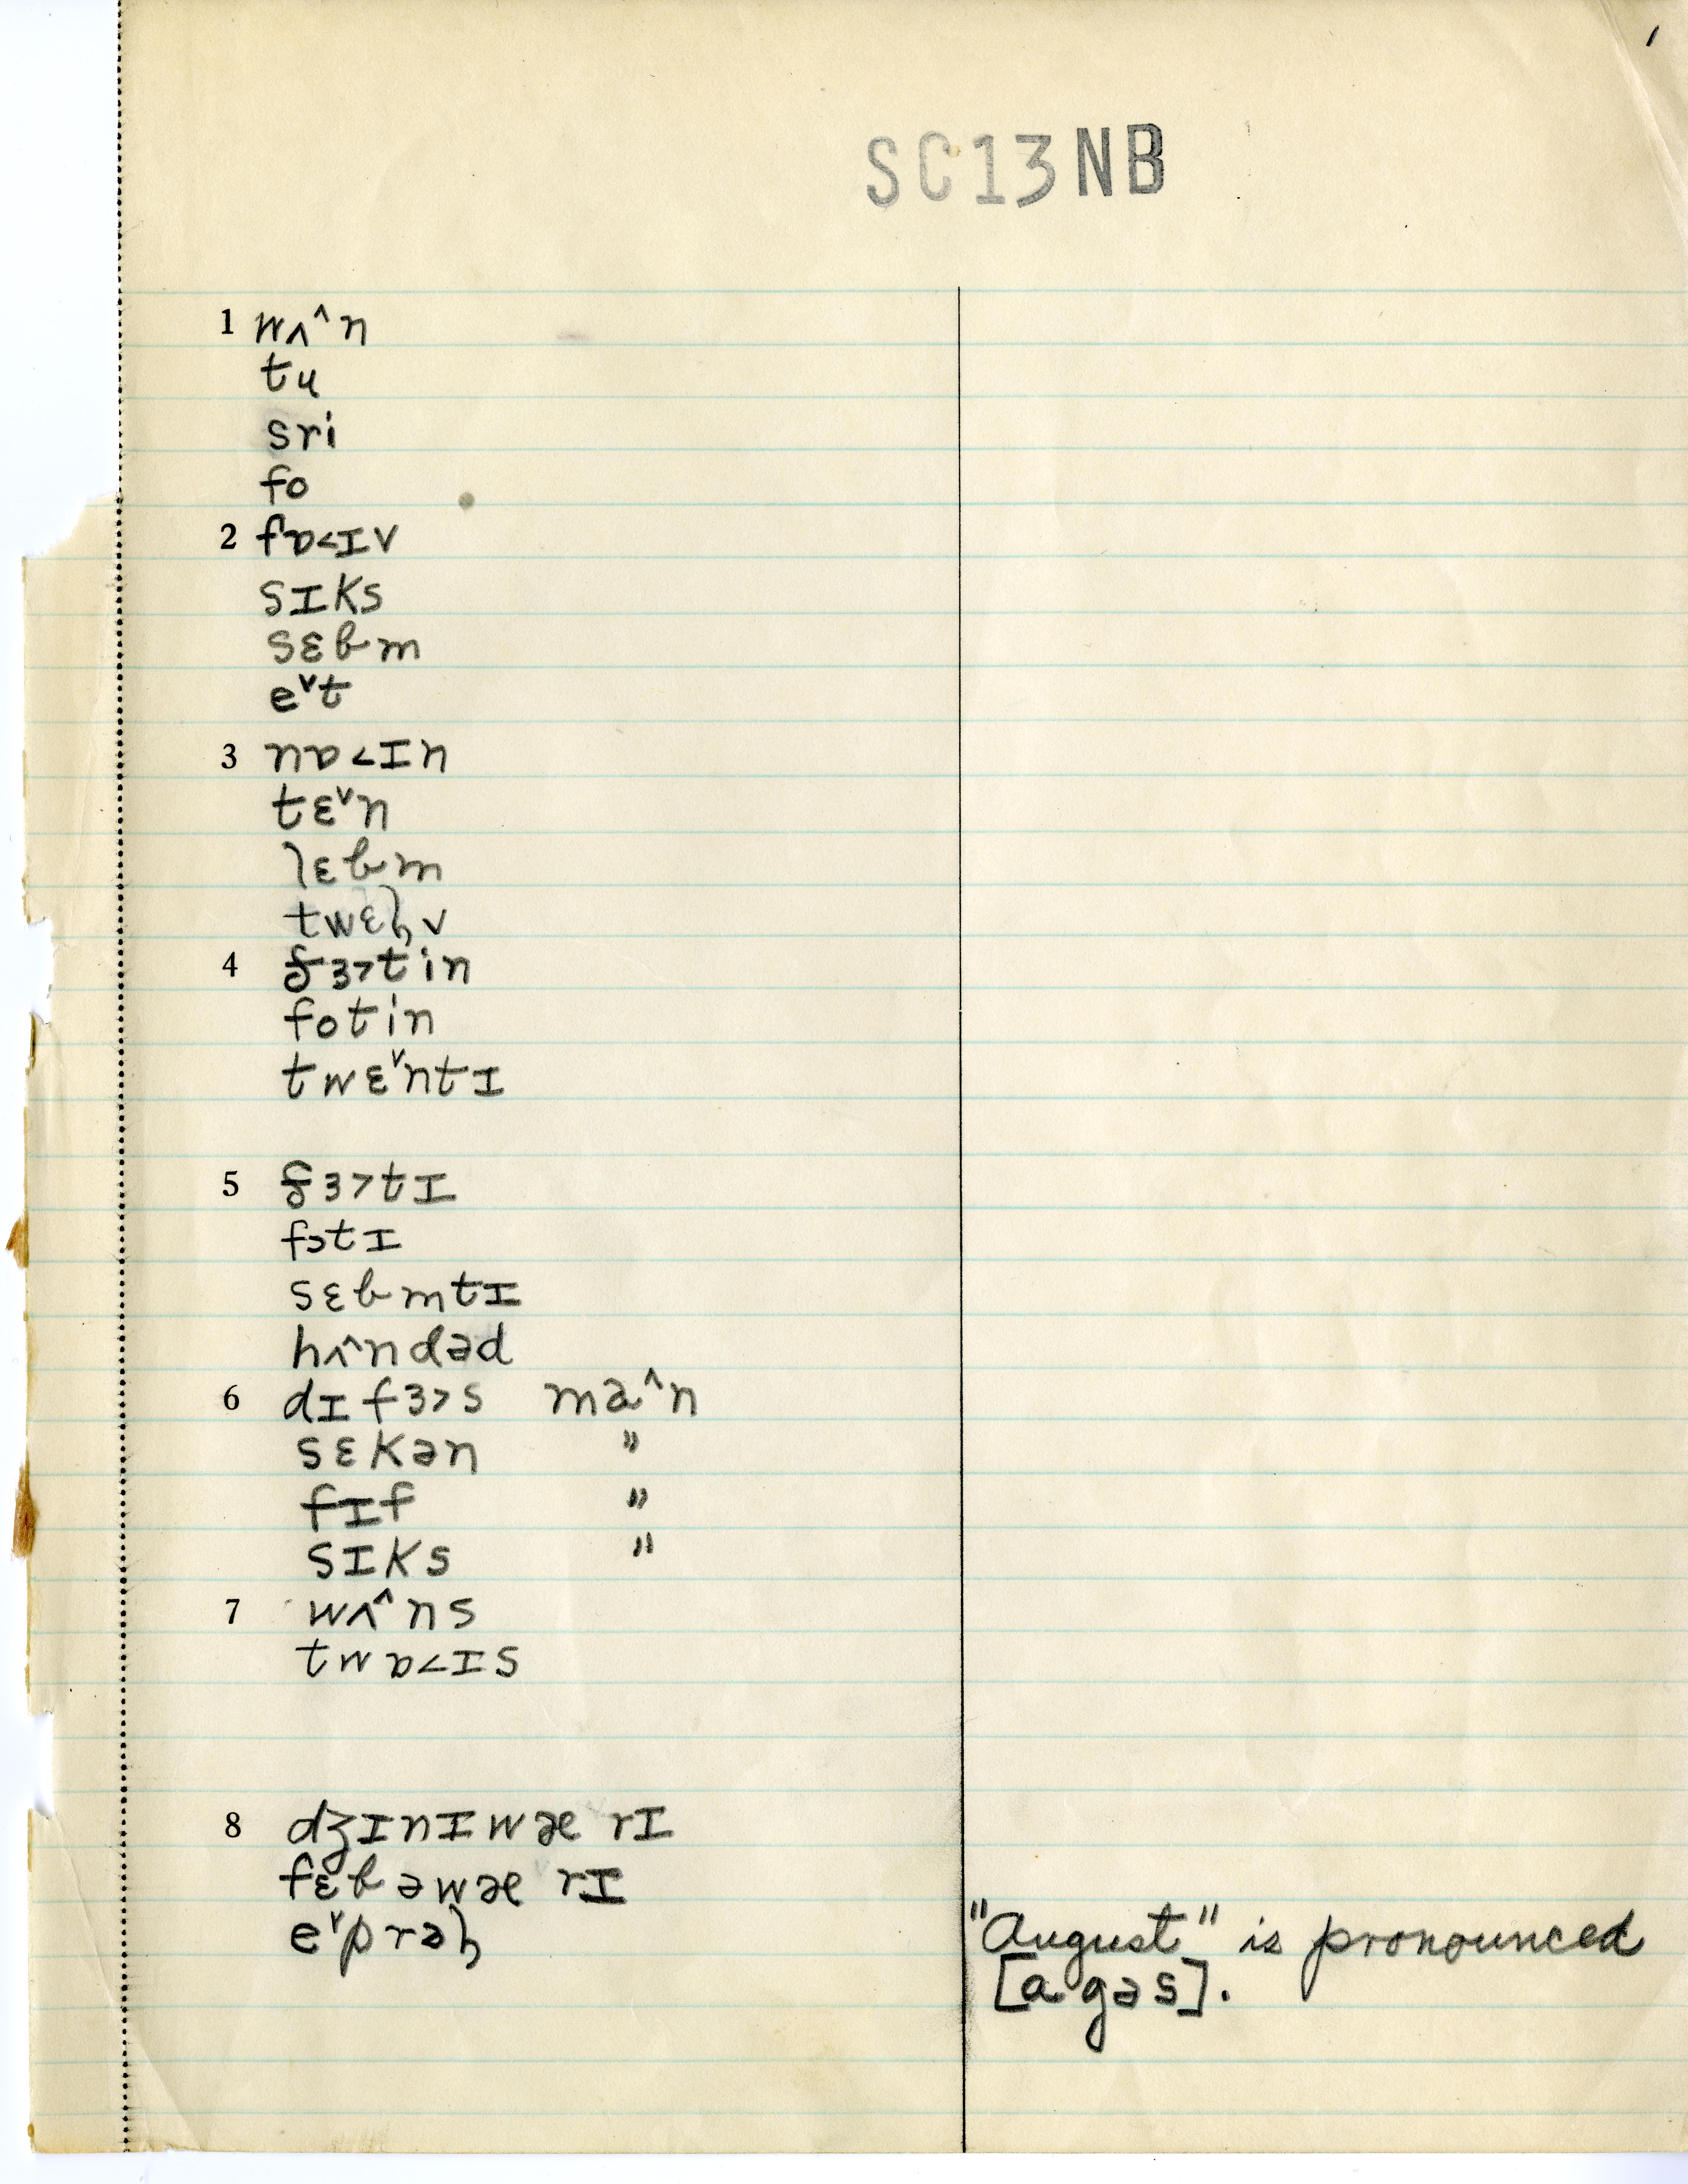 1
SC13NB
1 wʌ^n
tu
sri
fo
2 fɒ<ɪv
sɪks
sɛbm
e˅t
3 nɒ<ɪn
tɛ˅n
lɛbm
twɛɫv
4 ʂɜ>tin
fotin
twɛ˅ntɪ
5 ʂɜ>tɪ
fɔtɪ
sɛbmtɪ
hʌ^ndəd
6 dɪ fɜ>s ma^n
sɛkən "
fɪf "
sɪks "
7 wʌ^ns
twɒ<ɪs
8 dʒɪnɪwæ rɪ
fɛbəwæ rɪ
e˅prəɫ
"August" is pronounced
[a gəs].